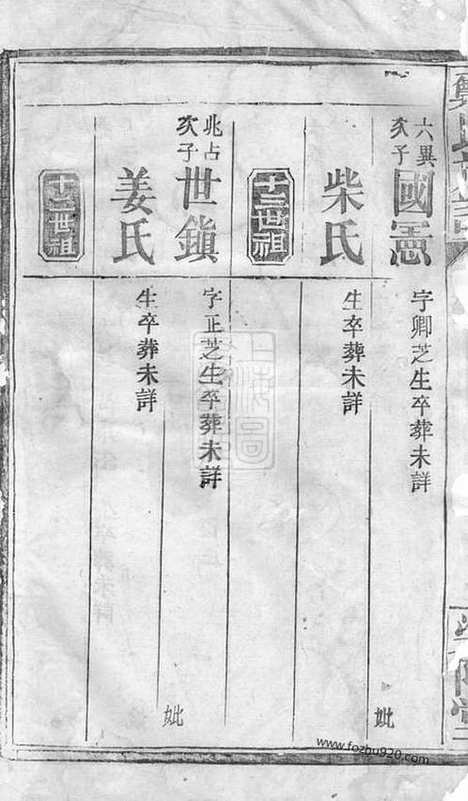 六異
次子
國憲
字卿芝生卒葬未詳
柴氏
生卒葬未詳
妣
十二世祖
兆占
次子
世鎖
字正芝生卒葬未詳
姜氏
生卒葬未詳
妣
十三世祖
www.fozhu920.com